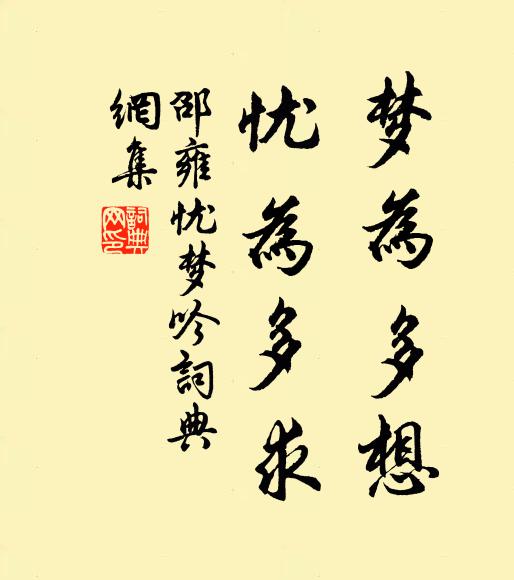 梦為多想
忧為多求
邵雍忧梦吟词典
網集
詞典
网印